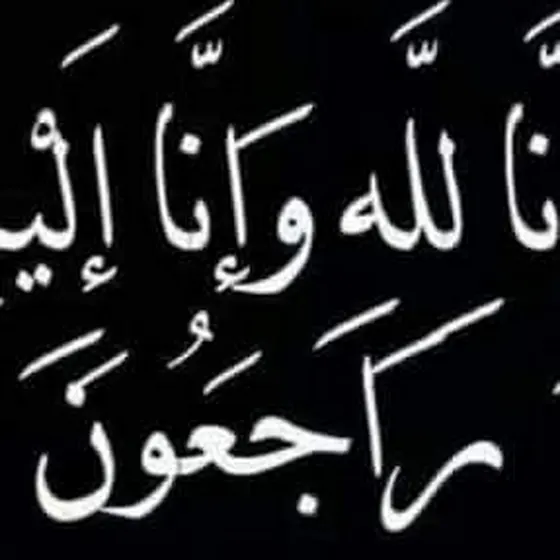 نَّا لِلَّه وَإِنَّا إِلَيـ
رَاجَعُونَ